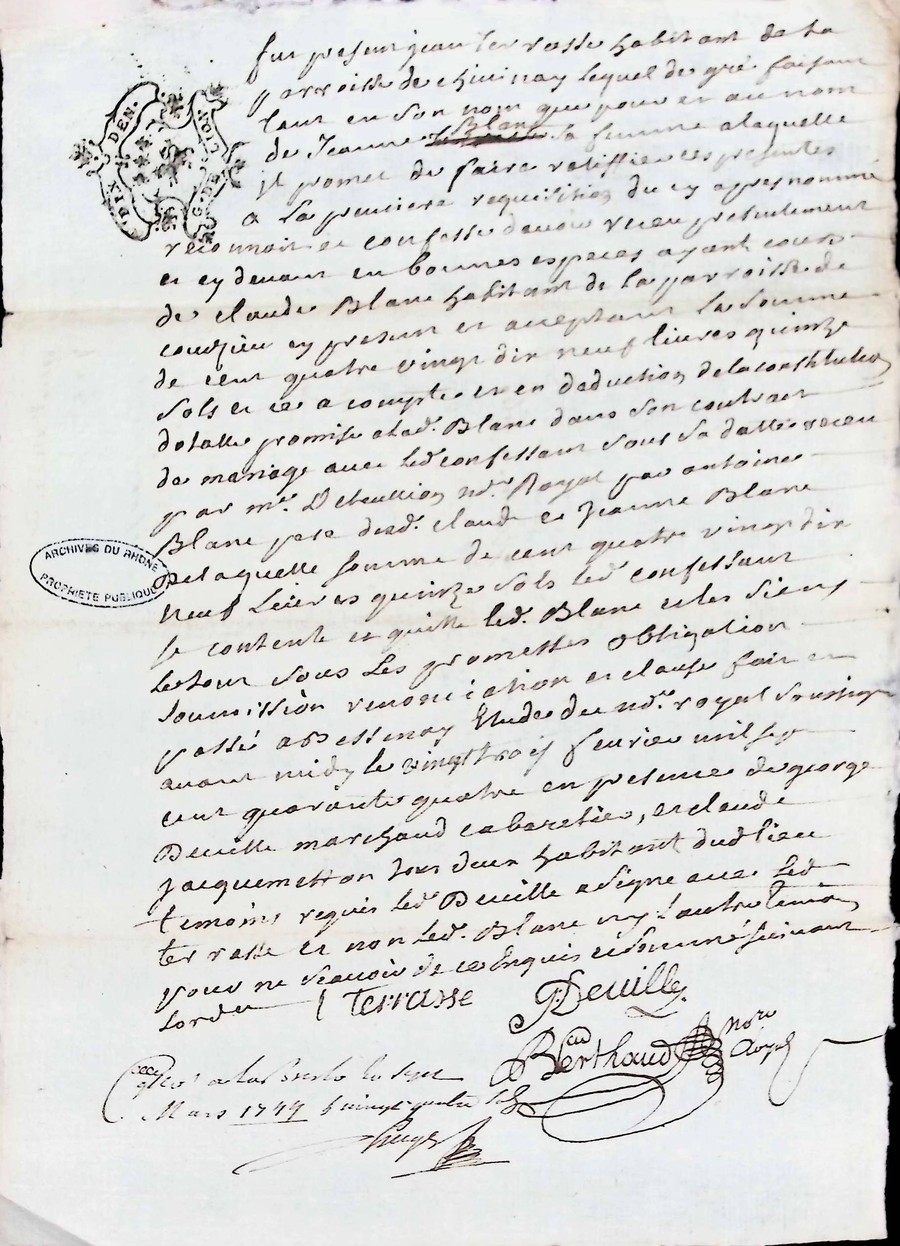 DIX DEN.
G. DE LION
fut present jean terrasse habitant de la
parroisse de chivinay lequel de gré faisant
tant en son nom que pour et au nom
de Jeanne Blanc sa femme a laquelle
jl promet de faire ratiffier ces presentes
a la premiere requisition du cy apres nommé
reconnoit et confesse d'avoir receu presentement
et cy devant en bonnes especes ayant cours
de claude Blanc habitant de la parroisse de
courzieu cy present et acceptant la somme
de cent quatre vingt dix neuf livres quinze
sols et ce a compte et en deduction de la constitution
dotalle promise a lad. Blanc dans son contract
de mariage avec led. confessant sous sa datte receu
par me. Nre. Royal par antoine
Blanc pere desd. claude et Jeanne Blanc
De laquelle somme de cent quatre vingt dix
neuf livres quinze sols led. confessant
se contente et quitte led. Blanc et les siens
le tout sous les promesses obligation
soumission renonciation et clause fait et
passé a Bessenay Etude du nore. royal soussigné
avant midy le vingt trois fevrier mil sept
cent quarante quatre en presence de george
Deville marchand cabaretier, et claude
jacquemetton tous deux habitant dud. lieu
temoins requis led. Deville a signé avec led.
terrasse et non led. Blanc ny l'autre temoin
pour ne sçavoir de ce Enquis et sommé suivant
lordre
Terrasse GDeville
Berthaud nore
Royal
a la Bresle le sept
Mars 1744 vingt quatre sols
ARCHIVES DU RHONE
PROPRIETE PUBLIQUE